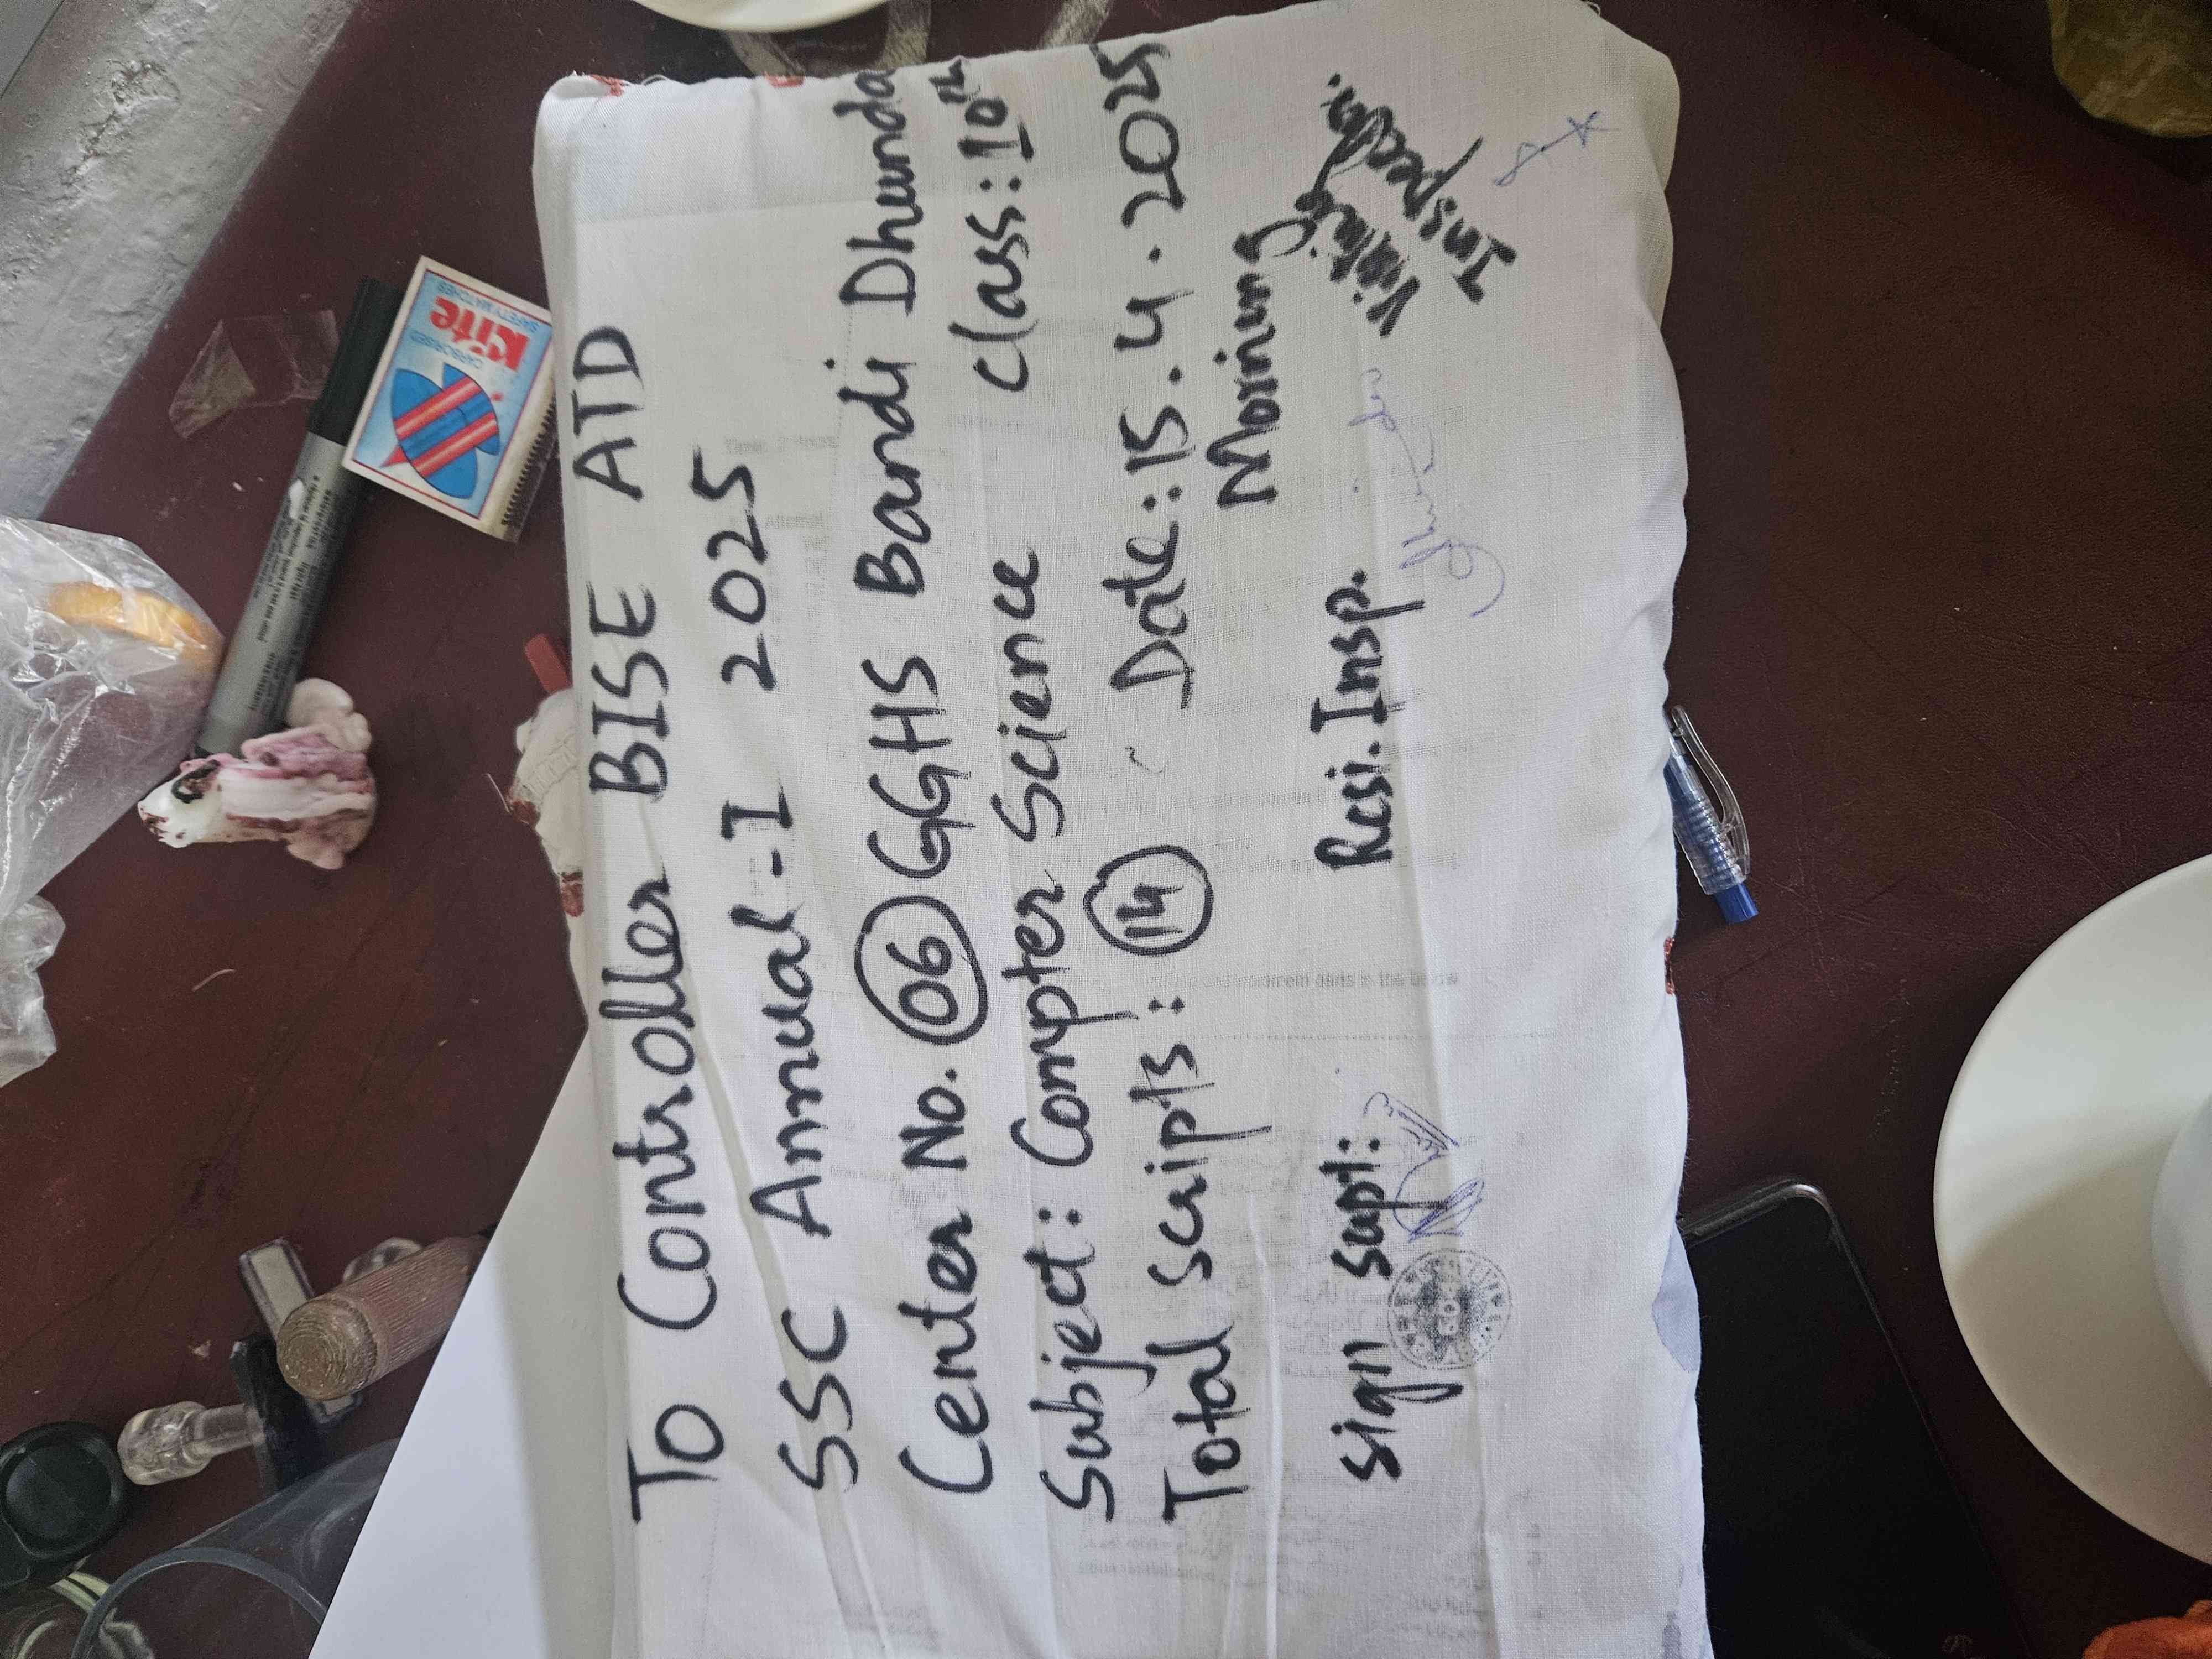 To Controller BISE ATD
SSC Annual-I 2025
Center No. 06 GGHS Bandi Dhunda
Subject: Compter Science Class: 10th
Total scripts: 14 Date: 15.4.2025
Morining
Sign supt: Resi. Insp. Visting Inspector.
CARBORISED
Kite
SAFETY MATCHES